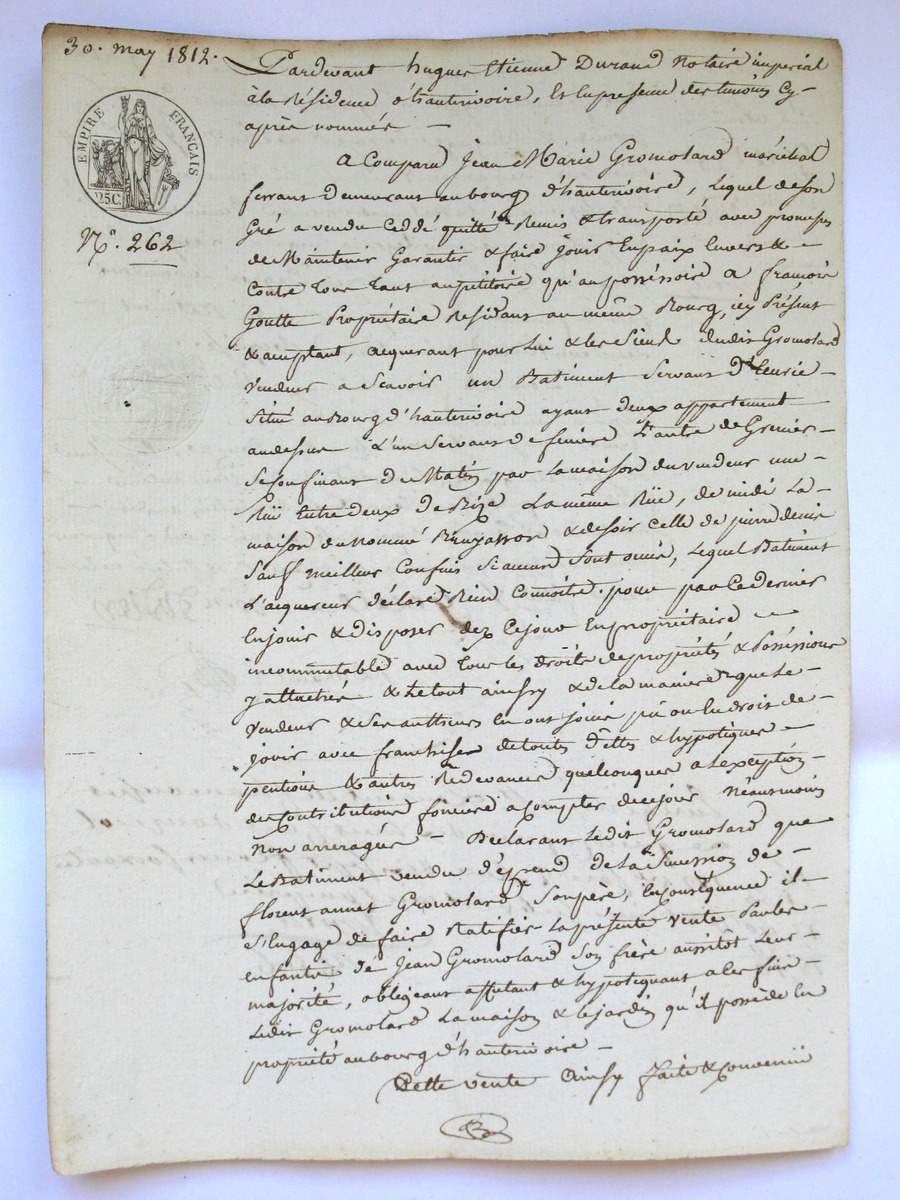 30. may 1812.
EMPIRE FRANÇAIS
25C.
N.º 262
Pardevant hugues Etienne Durand Notaire imperial
à la Résidence d'hauterivoire, & En presence des témoins Cy-
après nommés —
a Comparu Jean Marie Gromolard maréchal
ferrant demeurant au bourg d'hauterivoire, Lequel de son
Gré a vendu Ceddé quitté Remis & transporté avec promesses
de Maintenir Garantir & faire jouir En paix Envers &
Contre tous tant au pétitoire qu'au posséssoire a françois
Goutte Propriétaire Résidant au même Bourg, icy Présent
& acceptant, acquerant pour Lui & les Siens dudit Gromolard
Vendeur a Scavoir un Batiment Servant D'Ecurie —
Situé au Bourg d'hauterivoire ayant deux appartement
audessus L'un Servant de feniere L'autre de Grenier —
Se Confinant de Matin par La maison du vendeur une
Rüe Entredeux de Bize La même Rüe, de midi La
maison du Nommé & de soir Celle de pierre denis
Sauf meilleurs Confins Si aucuns Sont omis, Lequel Batiment
L'acquereur déclare Bien Connoitre. pour par Ce dernier
En jouir & disposer dez Ce jour En propriétaire —
incommutable avec tous les droits de propriétés & Posséssions
y attachés & Le tout ainssy & de la maniere que Le
Vendeur & Ses autheurs En ont joüi pü ou En droit de
jouir avec franchises de toutes dettes & hypotèques —
pentions & autres Redevances quelconques a L'exception
des Contributions foncieres a Compter de ce jour Néanmoins
Non arreragés — Declarant Ledit Gromolard que
Le Batiment vendu dépend de la Sucession de
florent annet Gromolard Son père, En Conséquence il
S'Engage de faire Ratifier La présente Vente Par les
enfants de Jean Gromolard Son frère aussitôt Leur
majorité, obligeant affectant & hypotequant a Ces fins
Ledit Gromolard La maison & le jardin qu'il possède En
propriété au bourg d'hauterivoire —
Cette vente Ainsy faite & Convenüe